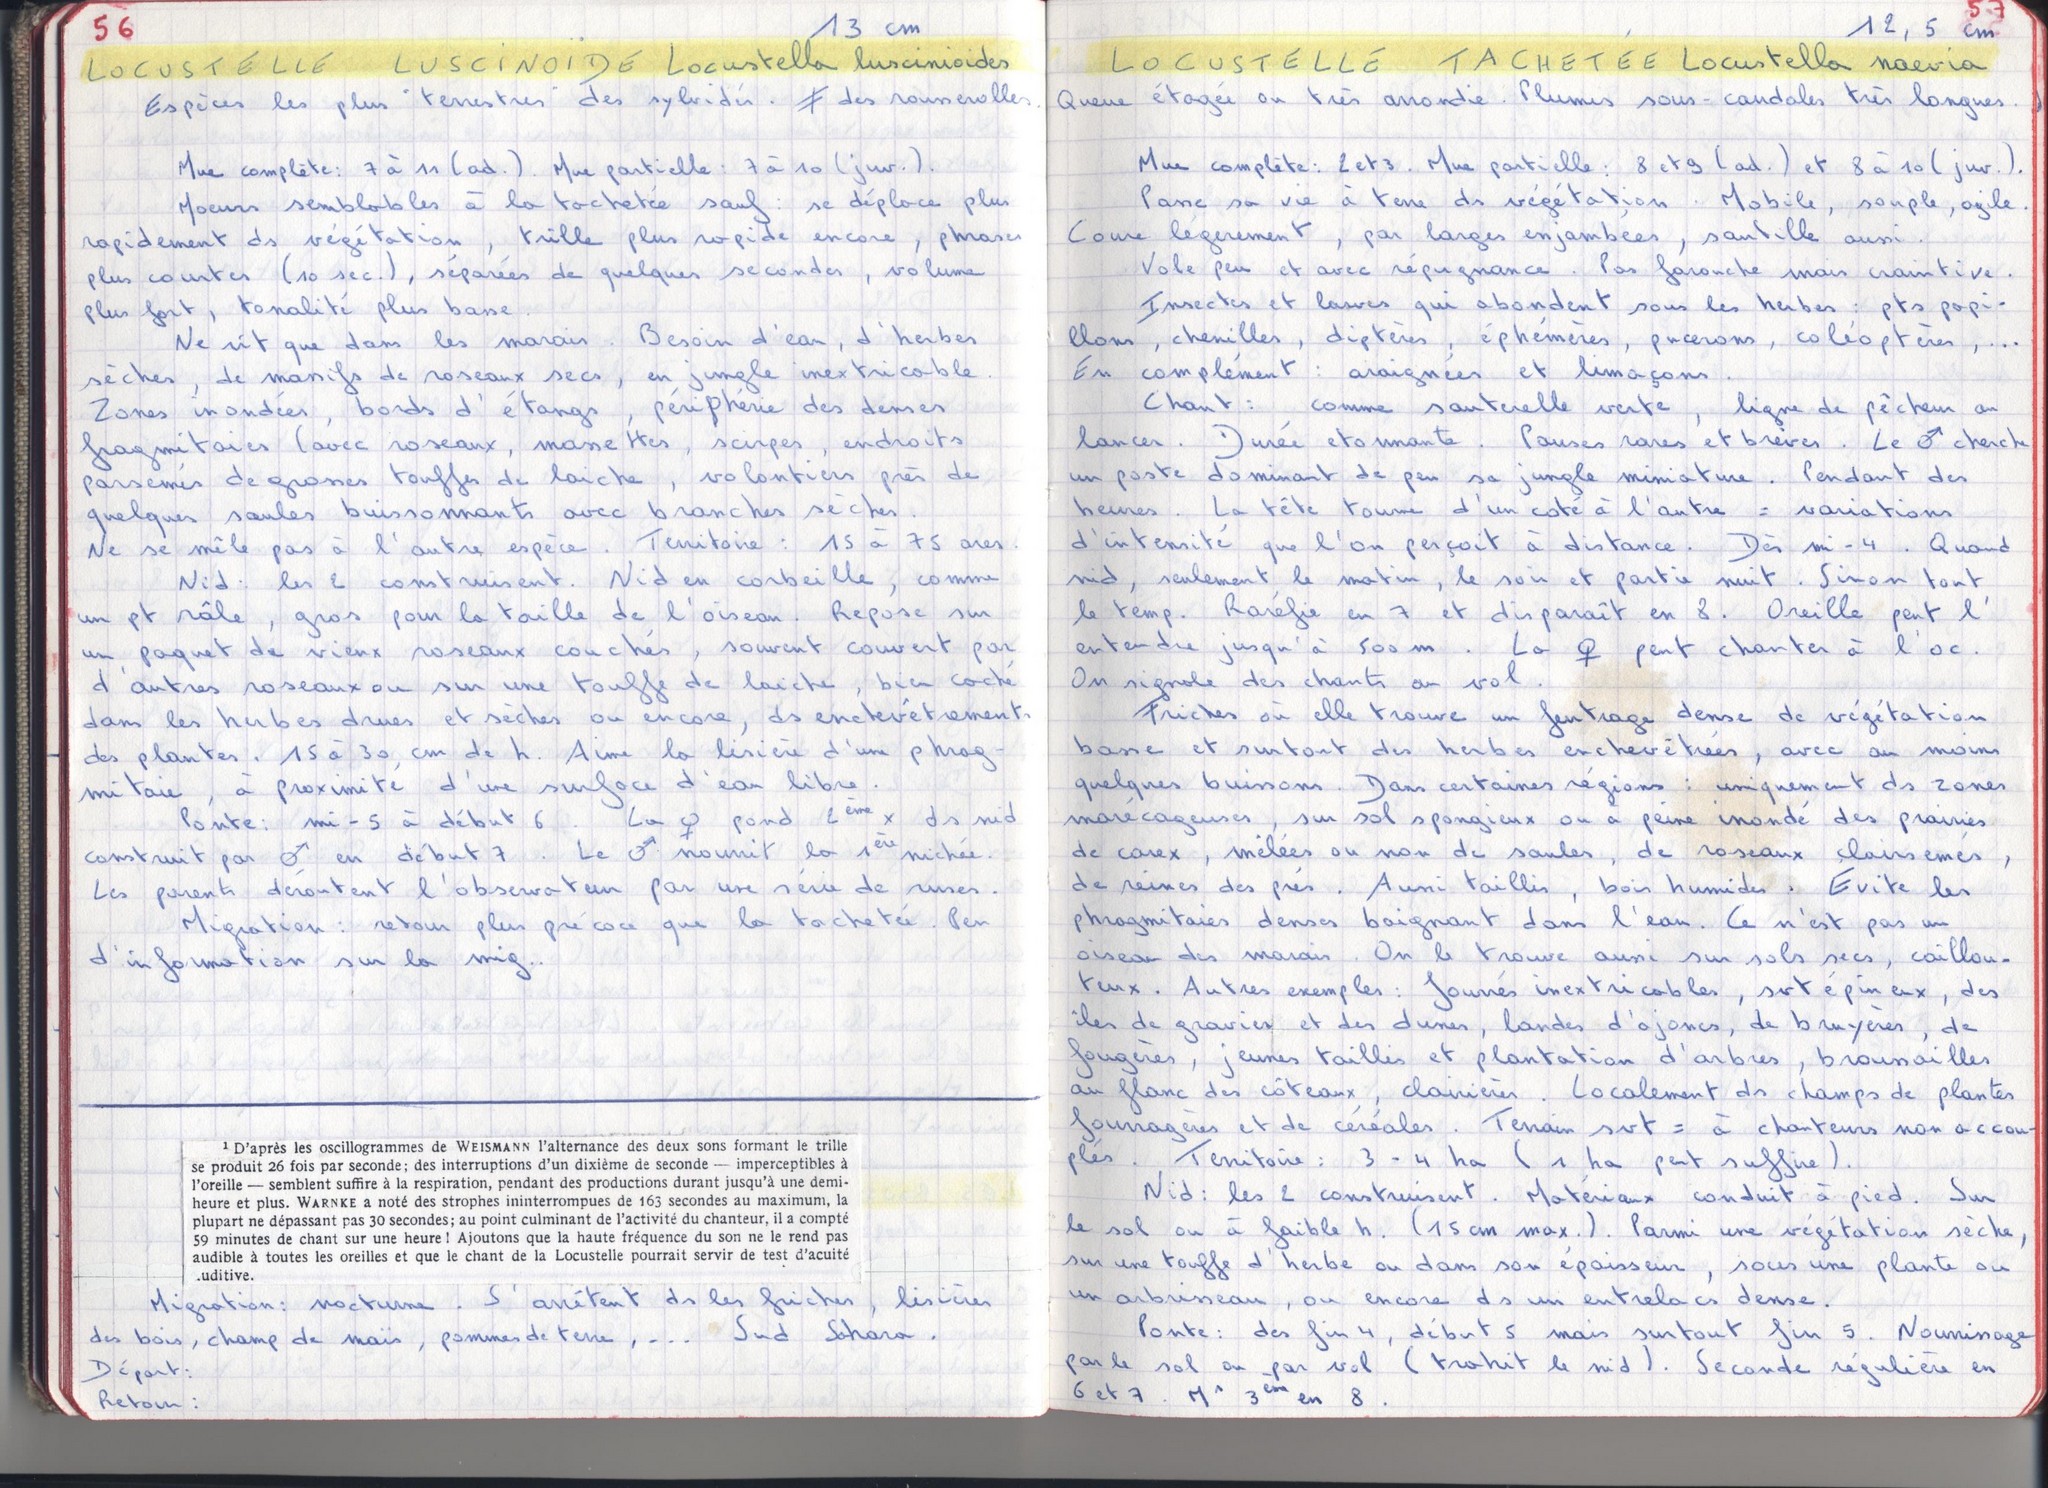 56
13 cm
LOCUSTELLE LUSCINOÏDE Locustella luscinioides
Espèces les plus "terrestres" des sylvidés. ≠ des rousserolles.
Mue complète: 7 à 11 (ad.). Mue partielle: 7 à 10 (juv.).
Moeurs semblables à la tachetée sauf: se déplace plus
rapidement ds végétation, trille plus rapide encore, phrases
plus courtes (10 sec.), séparées de quelques secondes, volume
plus fort, tonalité plus basse.
Ne vit que dans les marais. Besoin d'eau, d'herbes
sèches, de massifs de roseaux secs, en jungle inextricable.
Zones inondées, bords d'étangs, périphérie des denses
fragmitaies (avec roseaux, massettes, scirpes, endroits
parsemés de grosses touffes de laiche, volontiers près de
quelques saules buissonnants avec branches sèches.
Ne se mêle pas à l'autre espèce. Territoire: 15 à 75 ares.
Nid: les 2 construisent. Nid en corbeille, comme
un pt râle, gros pour la taille de l'oiseau. Repose sur
un paquet de vieux roseaux couchés, souvent couvert par
d'autres roseaux ou sur une touffe de laiche, bien caché
dans les herbes drues et sèches ou encore, ds enchevêtrements
des plantes. 15 à 30 cm de h. Aime la lisière d'une phrag-
mitaie, à proximité d'une surface d'eau libre.
Ponte: mi-5 à début 6. La ♀ pond 2ème x ds nid
construit par ♂ en début 7. Le ♂ nourrit la 1ère nichée.
Les parents déroutent l'observateur par une série de ruses.
Migration: retour plus précoce que la tachetée. Peu
d'information sur la mig..
¹ D'après les oscillogrammes de WEISMANN l'alternance des deux sons formant le trille
se produit 26 fois par seconde; des interruptions d'un dixième de seconde — imperceptibles à
l'oreille — semblent suffire à la respiration, pendant des productions durant jusqu'à une demi-
heure et plus. WARNKE a noté des strophes ininterrompues de 163 secondes au maximum, la
plupart ne dépassant pas 30 secondes; au point culminant de l'activité du chanteur, il a compté
59 minutes de chant sur une heure! Ajoutons que la haute fréquence du son ne le rend pas
audible à toutes les oreilles et que le chant de la Locustelle pourrait servir de test d'acuité
.uditive.
Migration: nocturne. S'arrêtent ds les friches, lisières
des bois, champ de maïs, pommes de terre, ... Sud Sahara.
Départ:
Retour:
57
12,5 cm
LOCUSTELLE TACHETÉE Locustella naevia
Queue étagée ou très arrondie. Plumes sous-caudales très longues.
Mue complète: 2 et 3. Mue partielle: 8 et 9 (ad.) et 8 à 10 (juv.).
Passe sa vie à terre ds végétation. Mobile, souple, agile.
Coure légèrement, par larges enjambées, sautille aussi.
Vole peu et avec répugnance. Pas farouche mais craintive.
Insectes et larves qui abondent sous les herbes: pts papi-
llons, chenilles, diptères, éphémères, pucerons, coléoptères, ...
En complément: araignées et limaçons.
Chant: comme sauterelle verte, ligne de pêcheur au
lancer. Durée étonnante. Pauses rares et brèves. Le ♂ cherche
un poste dominant de peu sa jungle miniature. Pendant des
heures. La tête tourne d'un coté à l'autre = variations
d'intensité que l'on perçoit à distance. Dès mi-4. Quand
nid, seulement le matin, le soir et partie nuit. Sinon tout
le temp. Raréfie en 7 et disparaît en 8. Oreille peut l'
entendre jusqu'à 500 m. La ♀ peut chanter à l'oc.
On signale des chants au vol.
Friches où elle trouve un feutrage dense de végétation
basse et surtout des herbes enchevêtrées, avec au moins
quelques buissons. Dans certaines régions: uniquement ds zones
marécageuses, sur sol spongieux ou à peine inondé des prairies
de carex, mêlées ou non de saules, de roseaux clairsemés,
de reines des prés. Aussi taillis, bois humides. Evite les
phragmitaies denses baignant dans l'eau. Ce n'est pas un
oiseau des marais. On le trouve aussi sur sols secs, caillou-
teux. Autres exemples: fourrés inextricables, svt épineux, des
îles de gravier et des dunes, landes d'ajoncs, de bruyères, de
fougères, jeunes taillis et plantation d'arbres, broussailles
au flanc des côteaux, clairières. Localement ds champs de plantes
fourragères et de céréales. Terrain svt = à chanteurs non accou-
plés. Territoire: 3-4 ha (1 ha peut suffire).
Nid: les 2 construisent. Matériaux conduit à pied. Sur
le sol ou à faible h. (15 cm max.). Parmi une végétation sèche,
sur une touffe d'herbe ou dans son épaisseur, sous une plante ou
un arbrisseau, ou encore ds un entrelacs dense.
Ponte: des fin 4, début 5 mais surtout fin 5. Nourrissage
par le sol ou par vol (trahit le nid). Seconde régulière en
6 et 7. Ms 3ème en 8.